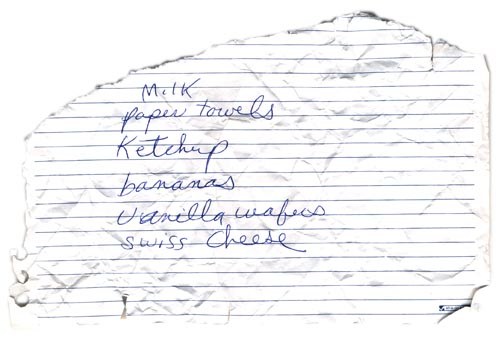 Milk
paper towels
Ketchup
bananas
vanilla wafers
swiss cheese